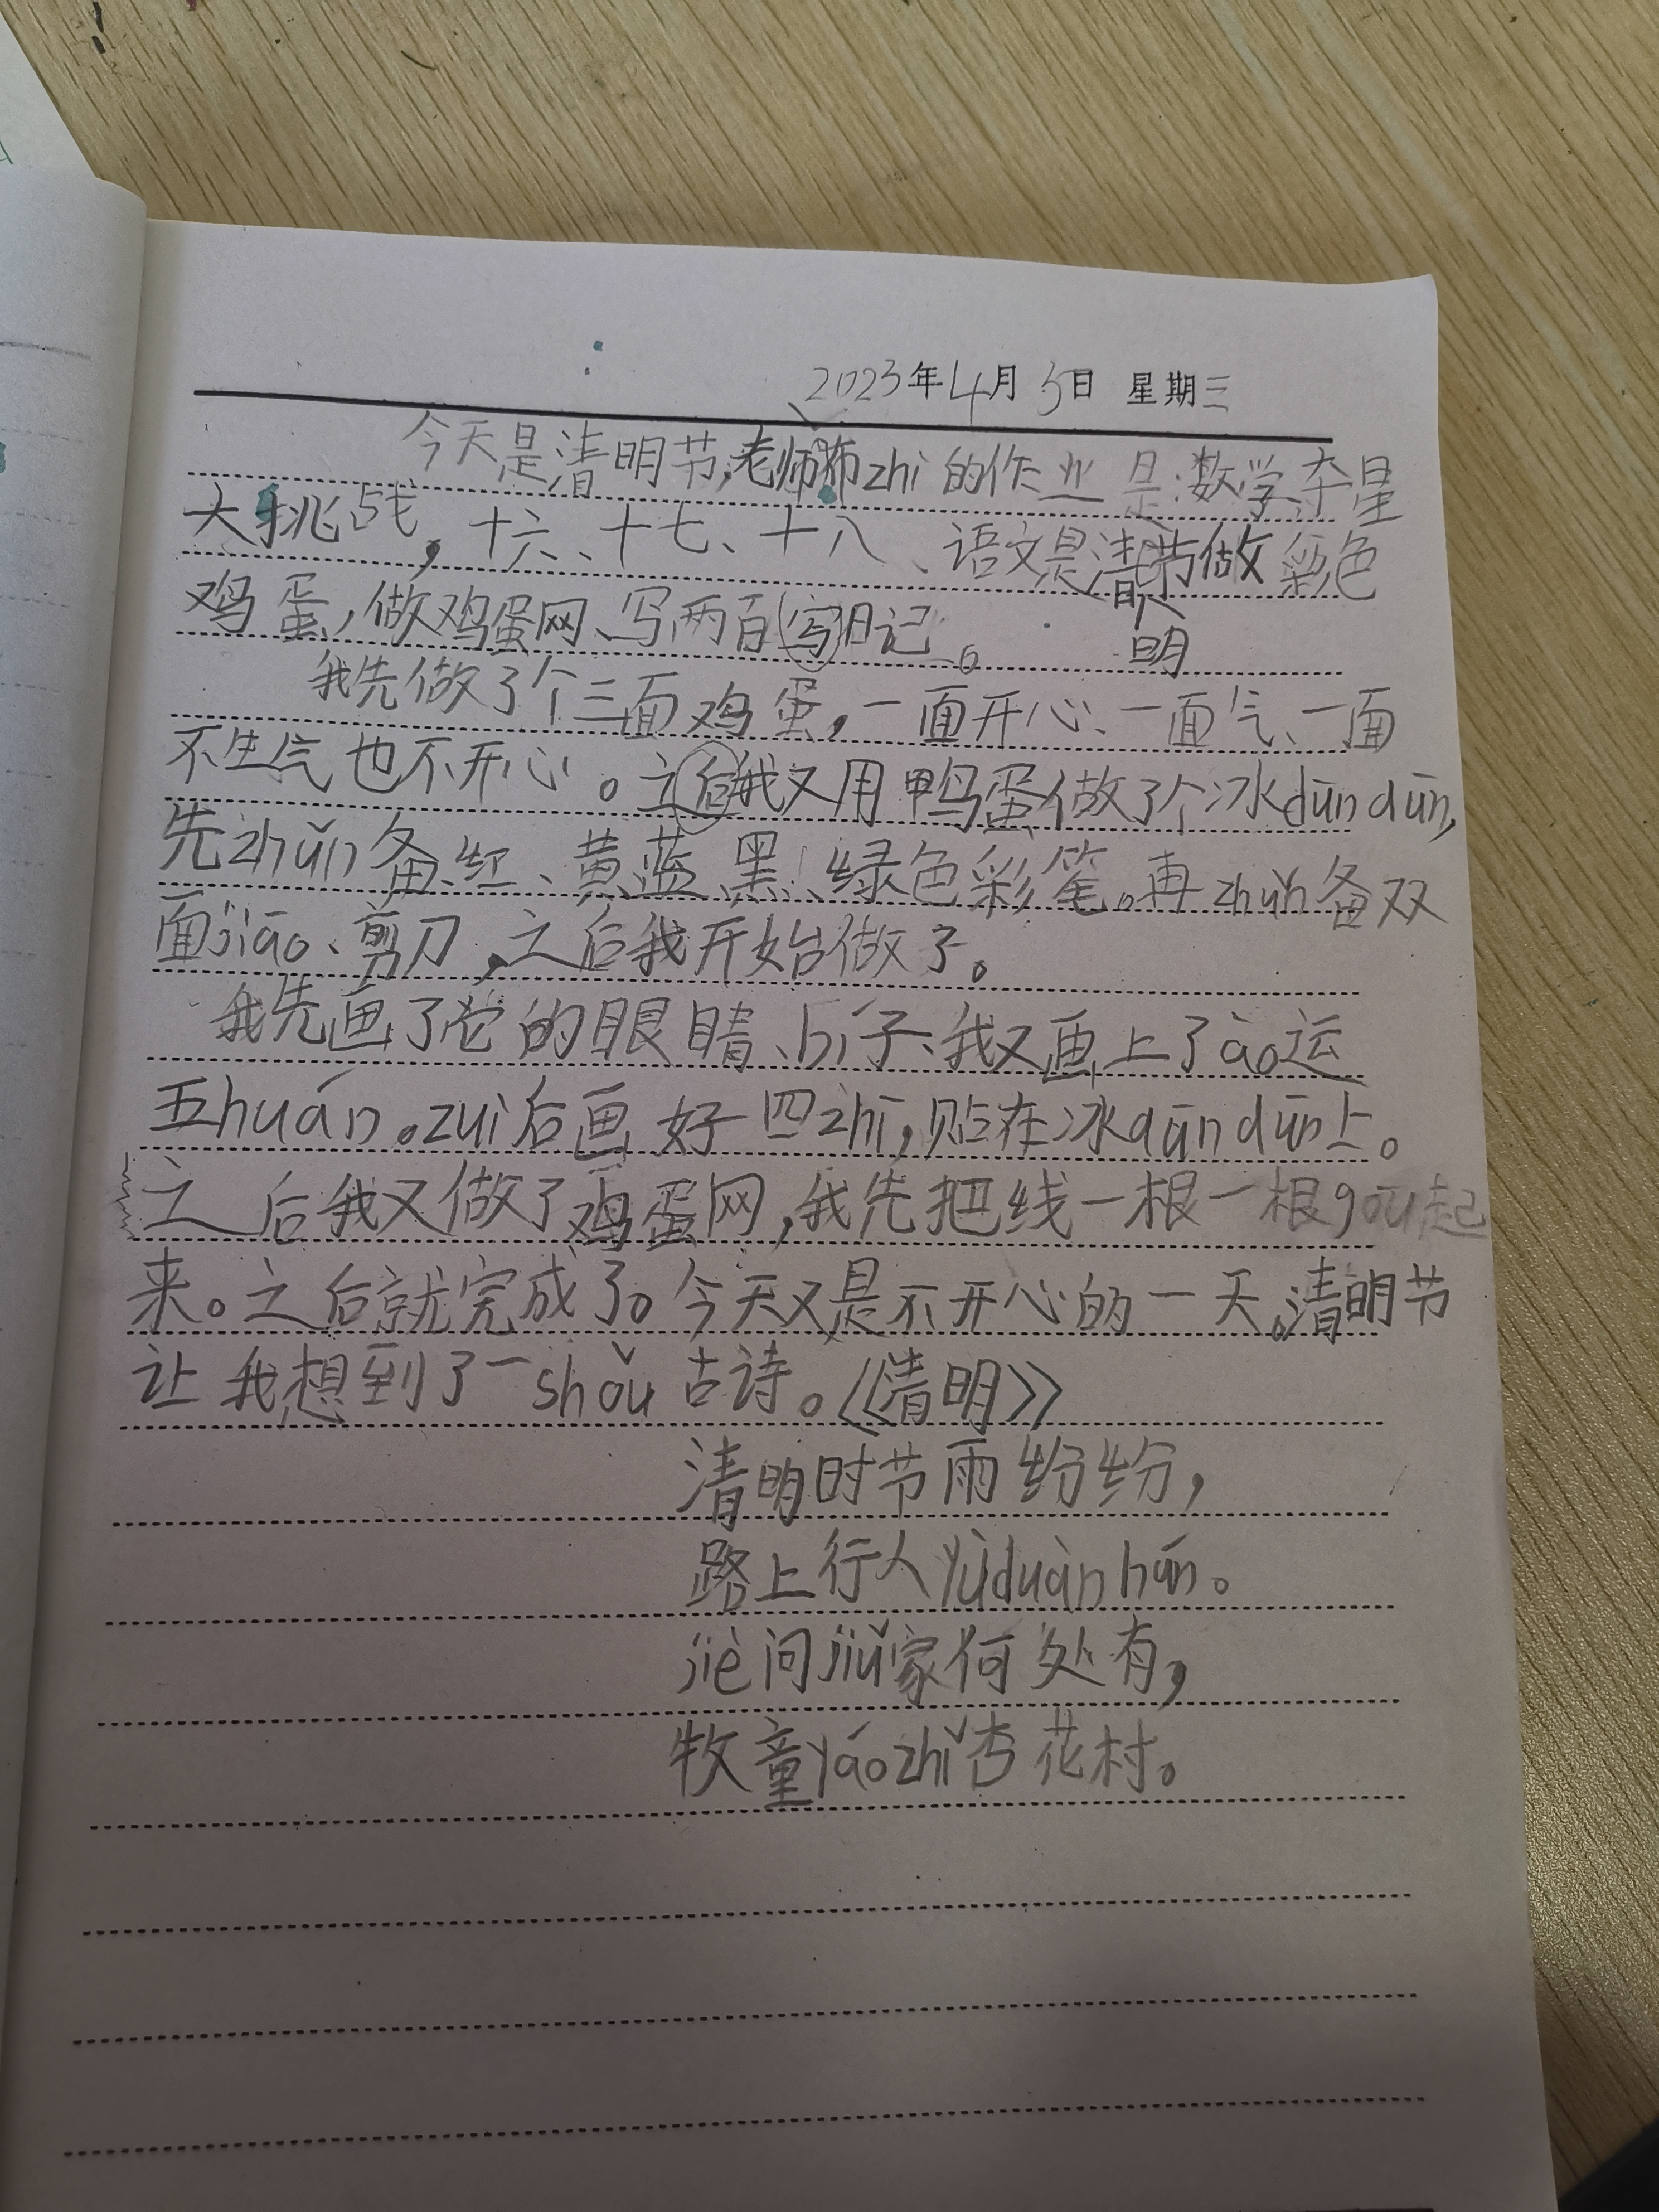 2023年4月5日 星期三
今天是清明节,老师布zhi的作业是:数学夺星
大挑战,十六、十七、十八、语文是清明节做彩色
鸡蛋,做鸡蛋网、写两百字日记。
我先做了个三面鸡蛋,一面开心、一面气、一面
不生气也不开心。之后我又用鸭蛋做了个冰dūndūn,
先zhǔn备红、黄、蓝、黑、绿色彩笔。再zhǔn备双
面jiāo、剪刀,之后我开始做了。
我先画了它的眼睛、bí子、我又画上了ào运
五huán。zuì后画好四zhī,贴在冰dūndūn上。
之后我又做了鸡蛋网,我先把线一根一根gōu起
来。之后就完成了。今天又是不开心的一天。清明节
让我想到了一shǒu古诗。《清明》
清明时节雨纷纷,
路上行人yùduànhún。
jiè问jiǔ家何处有,
牧童yáozhǐ杏花村。